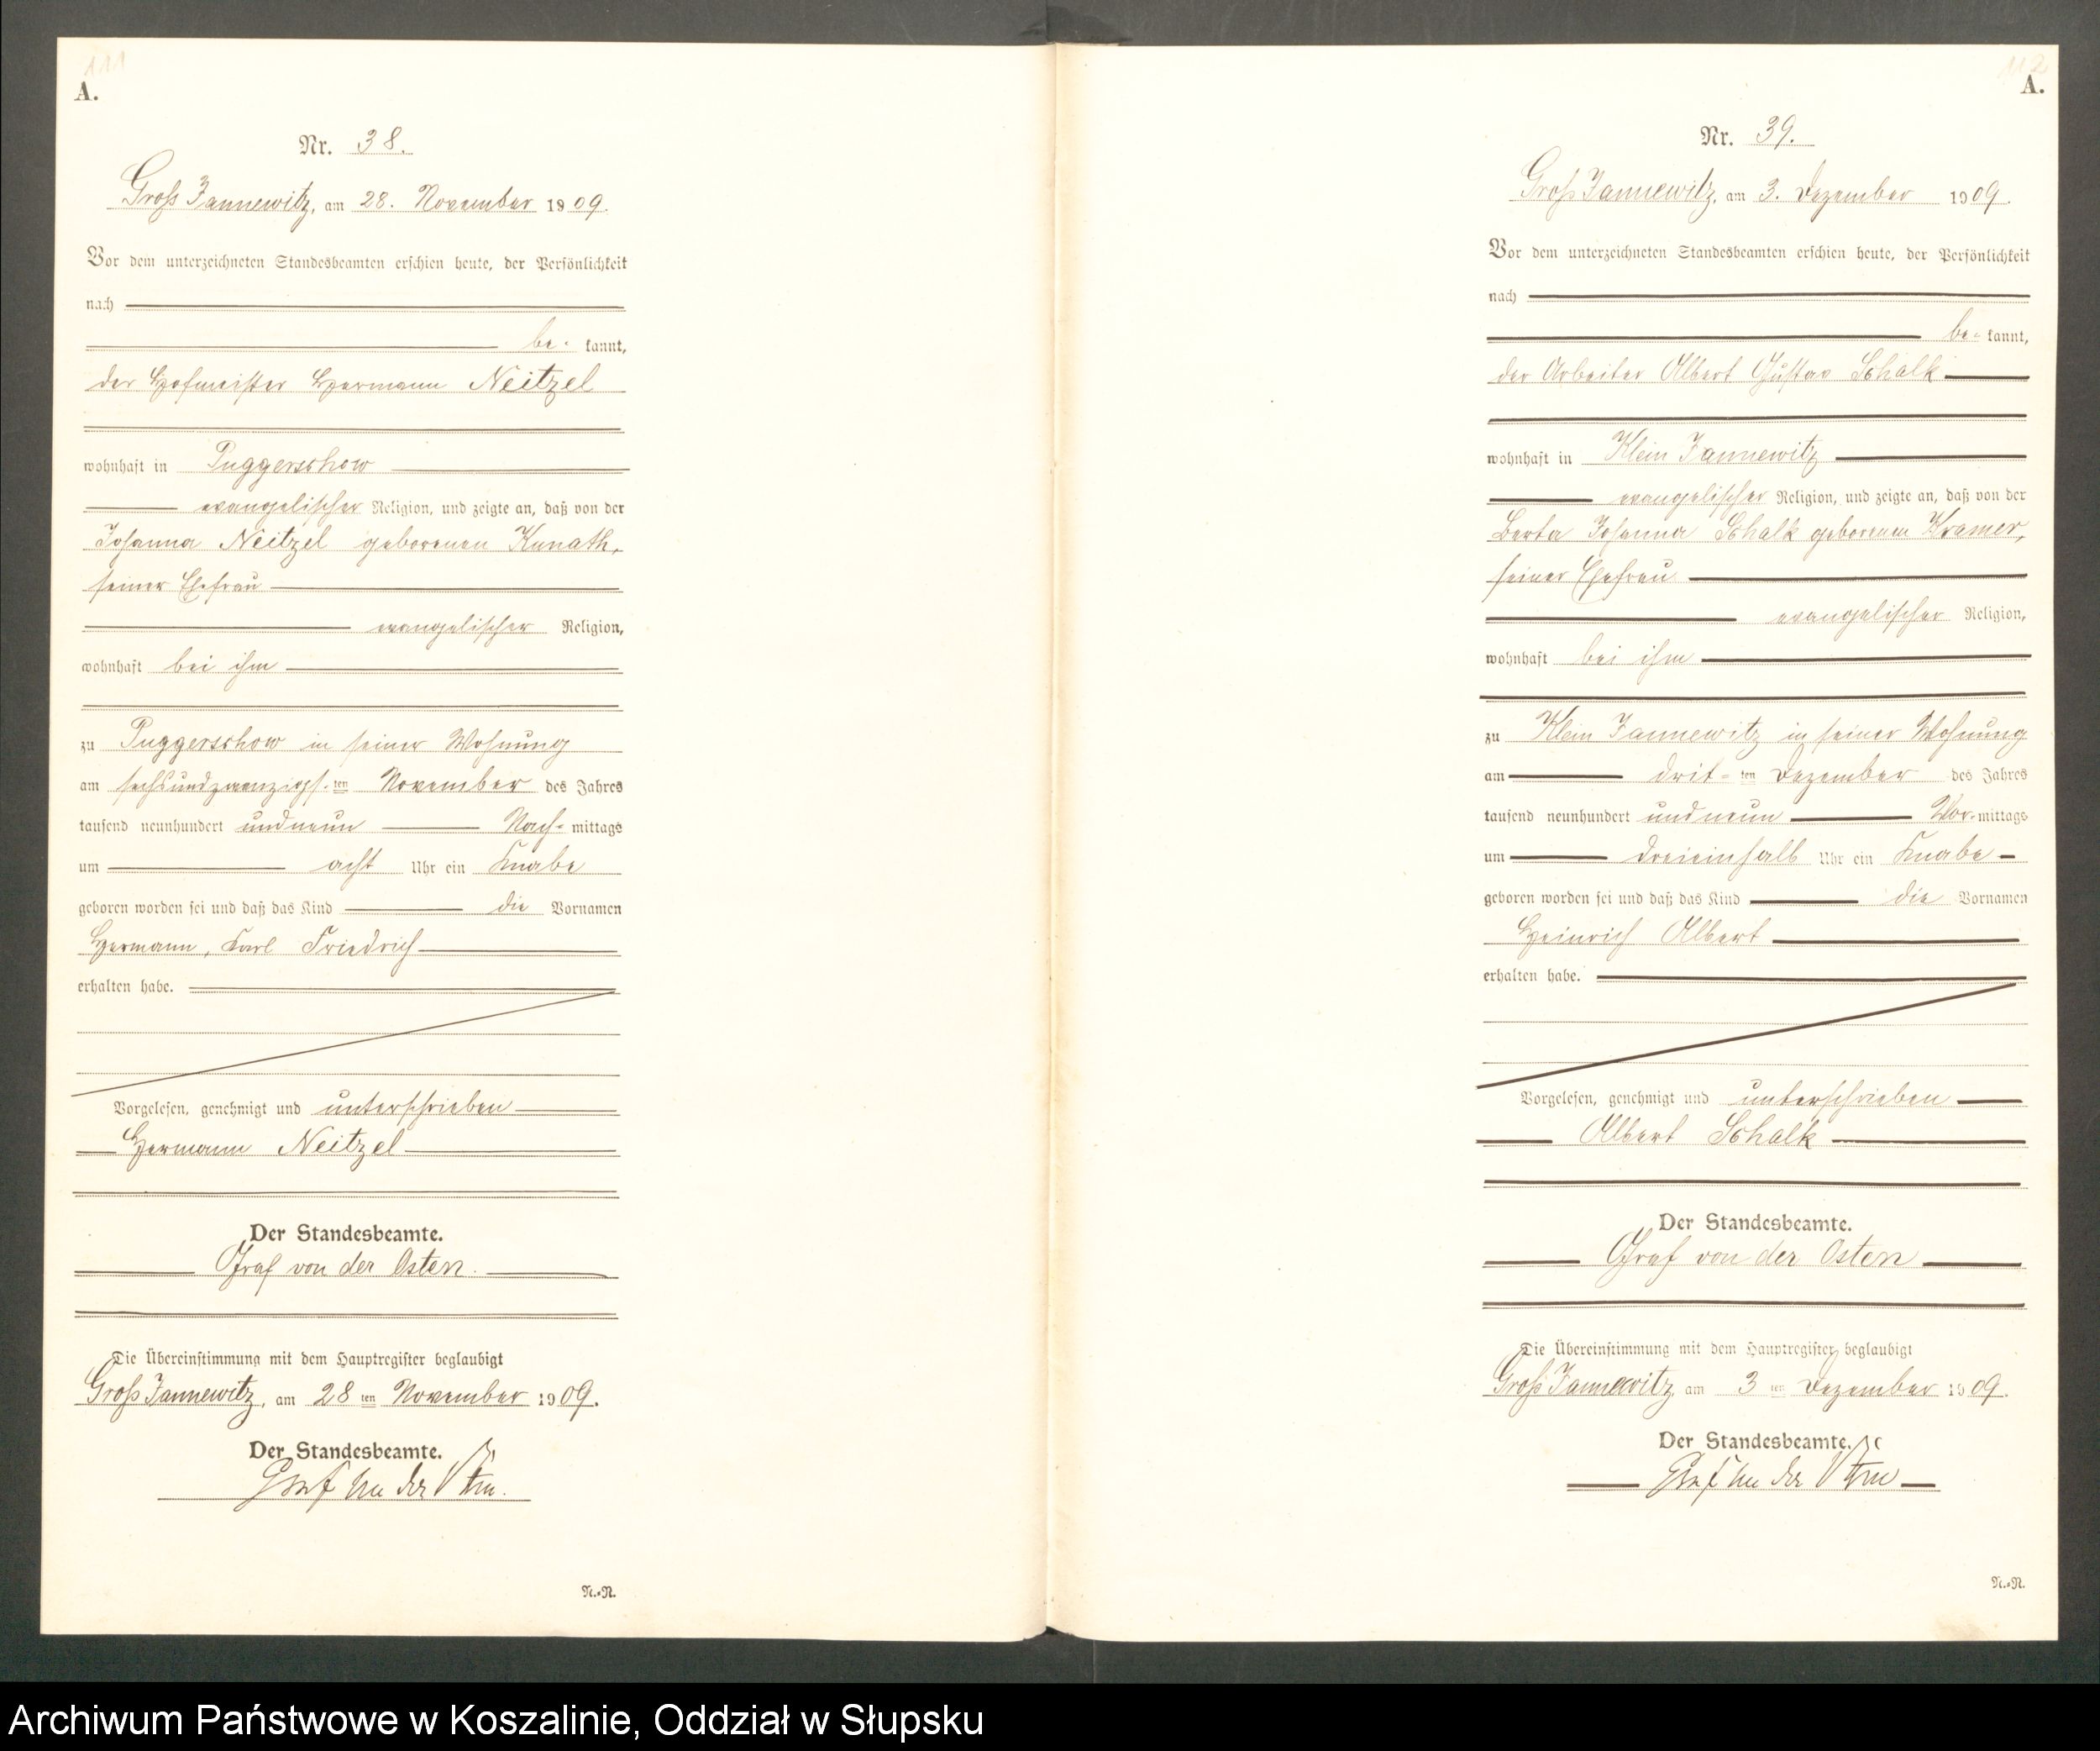 111
A.
Nr. 38.
Groß Jannewitz, am 28. November 1909.
Vor dem unterzeichneten Standesbeamten erschien heute, der Persönlichkeit
nach
be- kannt,
der Hofmeister Hermann Neitzel
wohnhaft in Puggerschow
evangelischer Religion, und zeigte an, daß von der
Johanna Neitzel geborenen Kunath,
seiner Ehefrau
evangelischer Religion,
wohnhaft bei ihm
zu Puggerschow in seiner Wohnung
am sechsundzwanzigs-ten November des Jahres
tausend neunhundert undneun Nach-mittags
um acht Uhr ein Knabe
geboren worden sei und daß das Kind die Vornamen
Hermann, Karl Friedrich
erhalten habe.
Vorgelesen, genehmigt und unterschrieben
Hermann Neitzel
Der Standesbeamte.
Graf von der Osten.
Die Übereinstimmung mit dem Hauptregister beglaubigt
Groß Jannewitz, am 28ten November 1909.
Der Standesbeamte.
Graf von der Osten.
N.=N.
112
A.
Nr. 39.
Groß Jannewitz, am 3. Dezember 1909.
Vor dem unterzeichneten Standesbeamten erschien heute, der Persönlichkeit
nach
be- kannt,
der Arbeiter Albert Gustav Schalk
wohnhaft in Klein Jannewitz
evangelischer Religion, und zeigte an, daß von der
Berta Johanna Schalk geborenen Kramer,
seiner Ehefrau
evangelischer Religion,
wohnhaft bei ihm
zu Klein Jannewitz in seiner Wohnung
am drit-ten Dezember des Jahres
tausend neunhundert undneun Vor-mittags
um dreieinhalb Uhr ein Knabe
geboren worden sei und daß das Kind die Vornamen
Heinrich Albert
erhalten habe.
Vorgelesen, genehmigt und unterschrieben
Albert Schalk
Der Standesbeamte.
Graf von der Osten
Die Übereinstimmung mit dem Hauptregister beglaubigt
Groß Jannewitz, am 3ten Dezember 1909.
Der Standesbeamte.
Graf von der Osten
N.=N.
Archiwum Państwowe w Koszalinie, Oddział w Słupsku